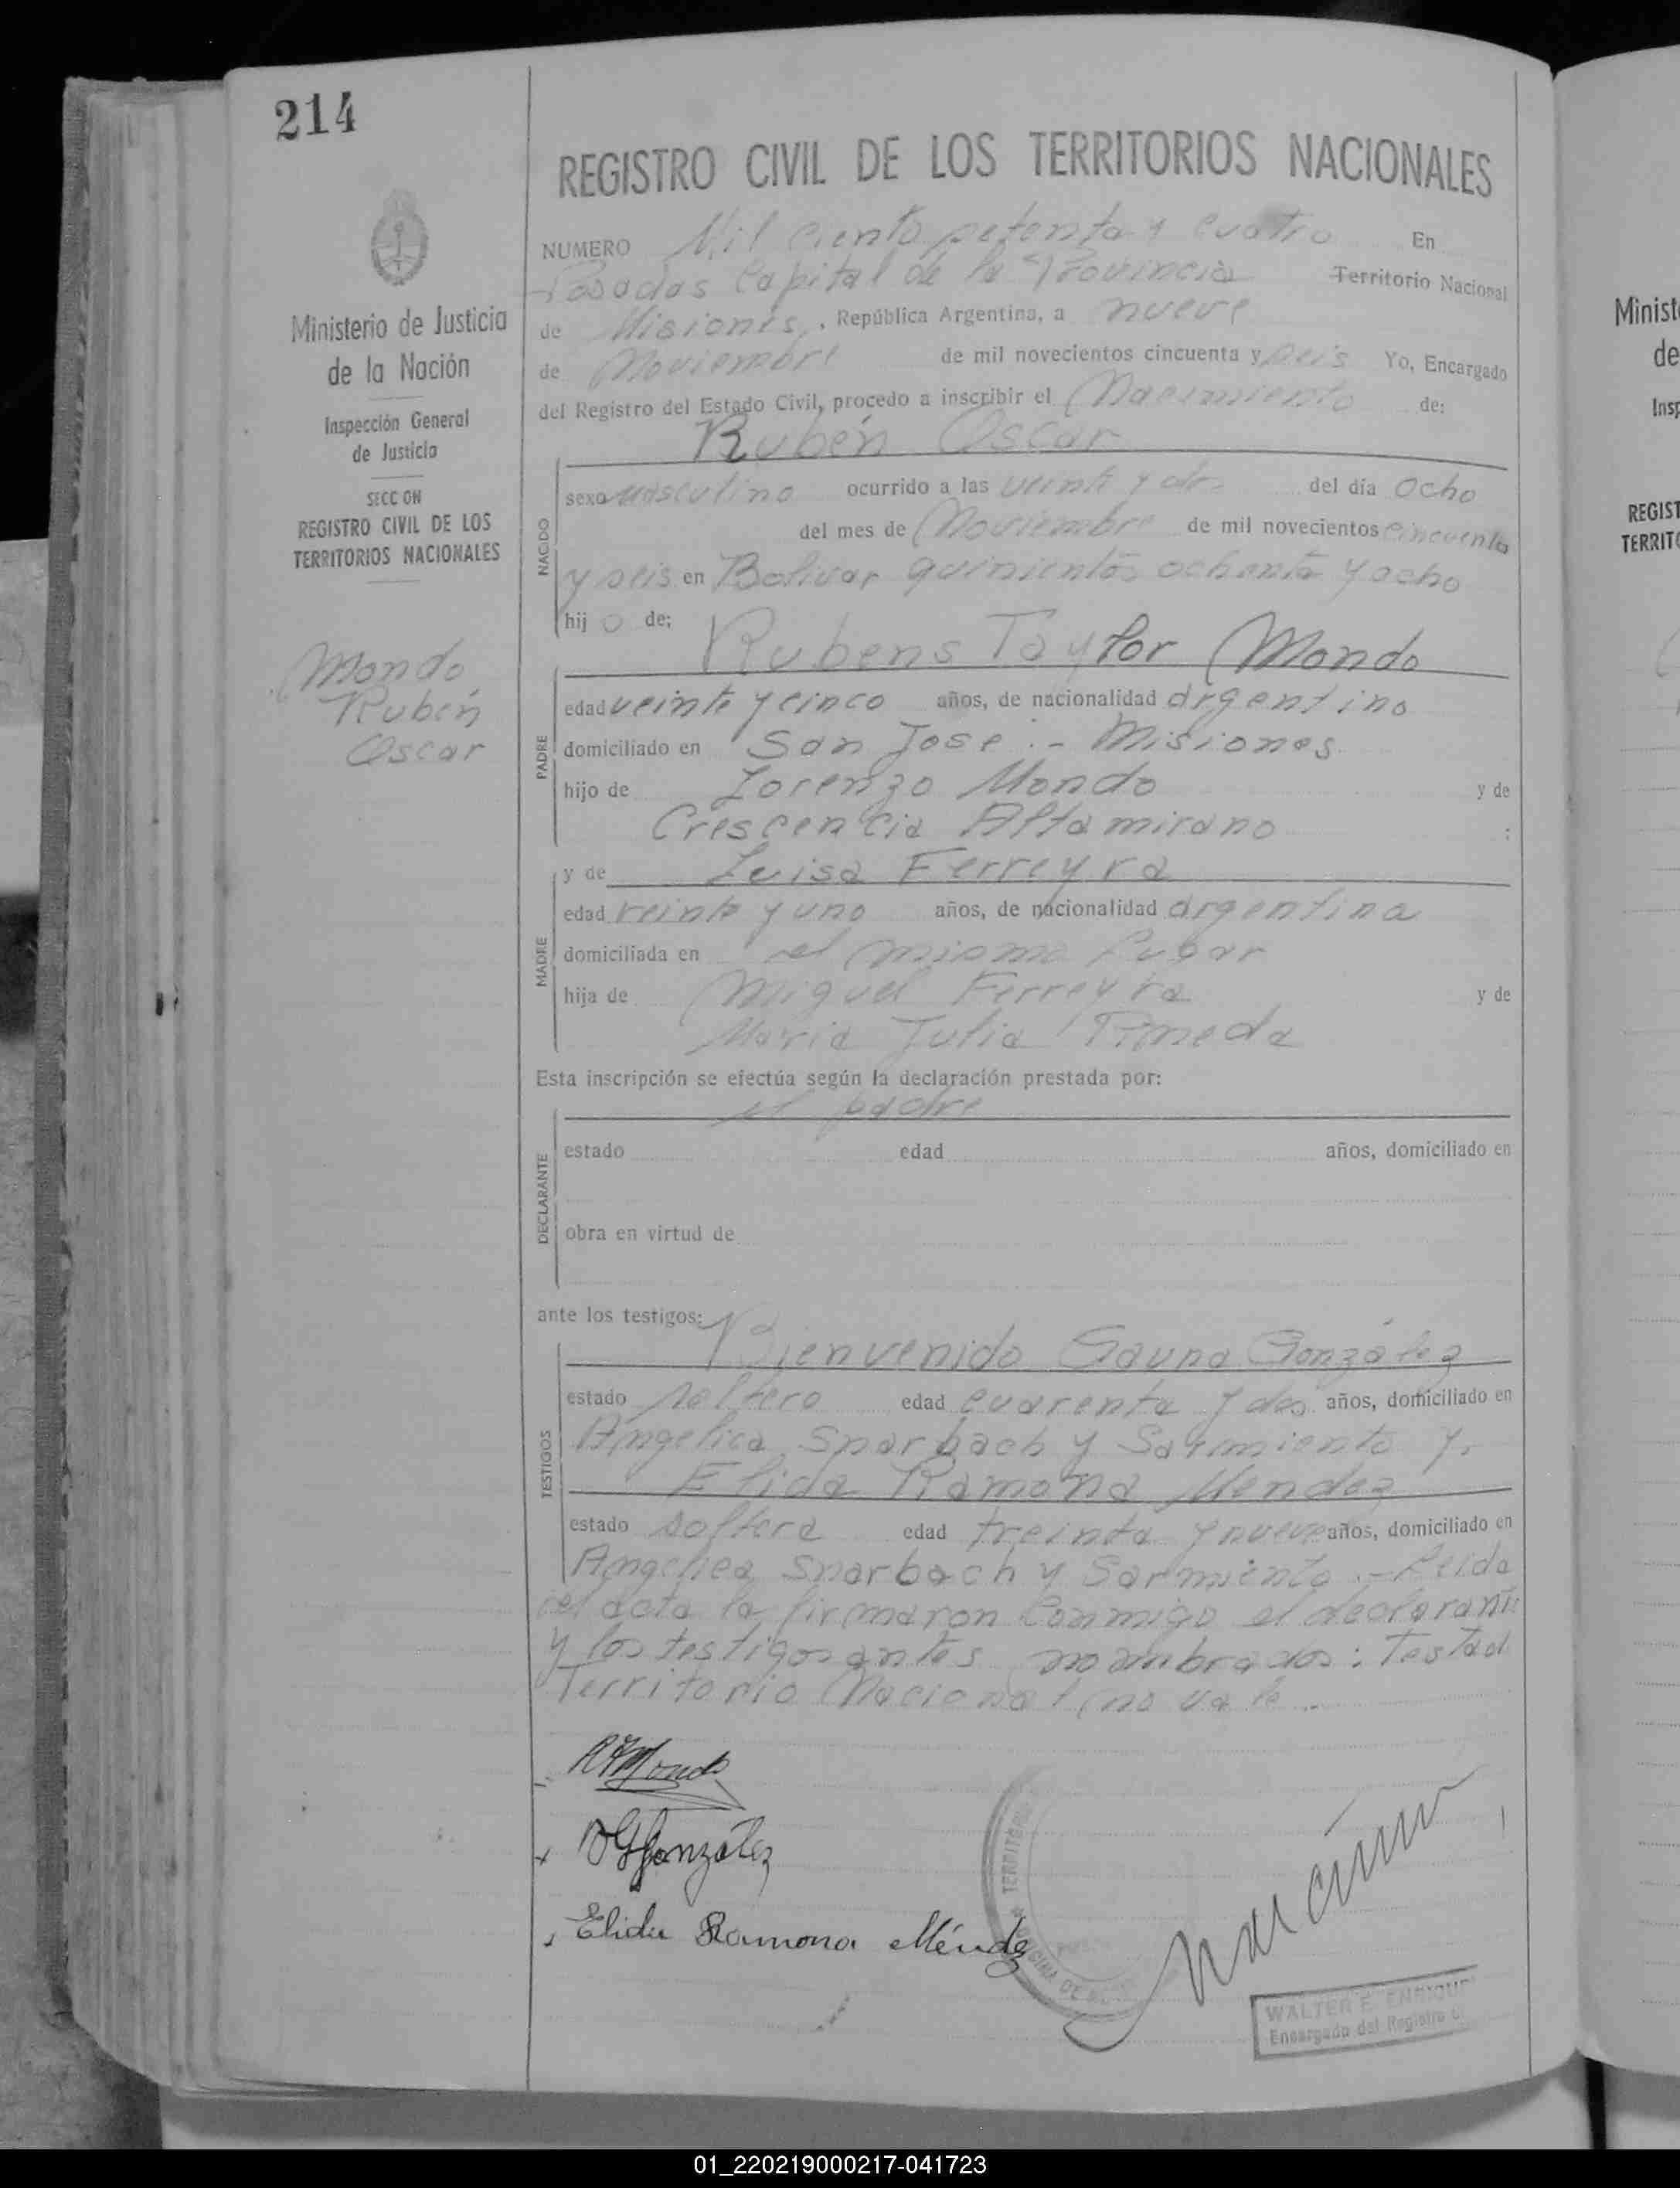 214
REGISTRO CIVIL DE LOS TERRITORIOS NACIONALES
NUMERO Mil ciento setenta y cuatro En
Posadas Capital de la Provincia Territorio Nacional
de Misiones, República Argentina, a nueve
de Noviembre de mil novecientos cincuenta y seis Yo, Encargado
del Registro del Estado Civil, procedo a inscribir el Nacimiento de:
Rubén Oscar
NACIDO
sexo masculino ocurrido a las veinte y dos del día Ocho
del mes de Noviembre de mil novecientos cincuenta
y seis en Bolivar quinientos ochenta y ocho
hijo de:
Rubens Taylor Mondo
PADRE
edad veinte y cinco años, de nacionalidad argentino
domiciliado en San Jose .- Misiones
hijo de Lorenzo Mondo y de
Crescencia Altamirano :
y de Luisa Ferreyra
MADRE
edad veinte y uno años, de nacionalidad argentina
domiciliada en el mismo lugar
hija de Miguel Ferreyra y de
Maria Julia Pineda
Esta inscripción se efectúa según la declaración prestada por:
el padre
DECLARANTE
estado edad años, domiciliado en
obra en virtud de
ante los testigos:
Bienvenido Gauna González
TESTIGOS
estado soltero edad cuarenta y dos años, domiciliado en
Angelica Snarbach y Sarmiento y.
Elida Ramona Mendez
estado soltera edad treinta y nueve años, domiciliado en
Angelica Snarbach y Sarmiento .- Leida
el acta la firmaron conmigo el declarante
y los testigos antes nombrados: Testad
Territorio Nacional no vale.
Ministerio de Justicia
de la Nación
Inspección General
de Justicia
SECC ON
REGISTRO CIVIL DE LOS
TERRITORIOS NACIONALES
Mondo
Rubén
Oscar
Mondo
González
Elida Ramona Méndez
TERRITORI
WALTER E. ENRIQUE
Encargado del Registro C
Minist
de
Insp
REGIST
TERRITO
01_220219000217-041723